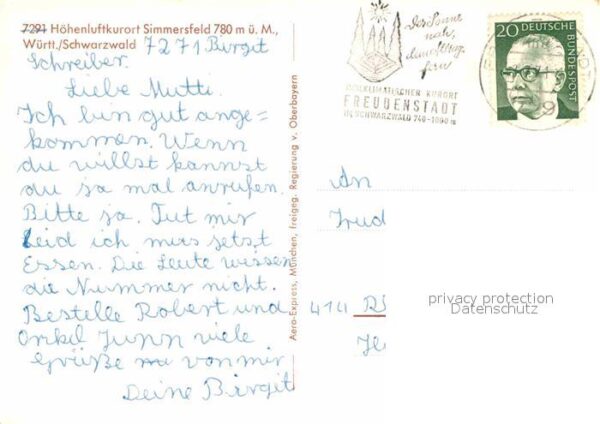 7291 Höhenluftkurort Simmersfeld 780 m ü. M.,
Württ./Schwarzwald 7271 Birgit
Schreiber.
Liebe Mutti.
Ich bin gut ange-
kommen. Wenn
du willst kannst
du ja mal anrufen.
Bitte ja. Tut mir
Leid ich mus jetst
Essen. Die Leute wissen
die Nummer nicht.
Bestelle Robert und
Onkil Junn viele
Grüße von mir
Deine Birgit
Aero-Express, München, Freigeg. Regierung v. Oberbayern
Der Sonne
nah,
dem Alltag
fern
HEILKLIMATISCHER KURORT
FREUDENSTADT
IM SCHWARZWALD 740-1000 m
20 DEUTSCHE
BUNDESPOST
An
Trud
414 R
privacy protection
Datenschutz